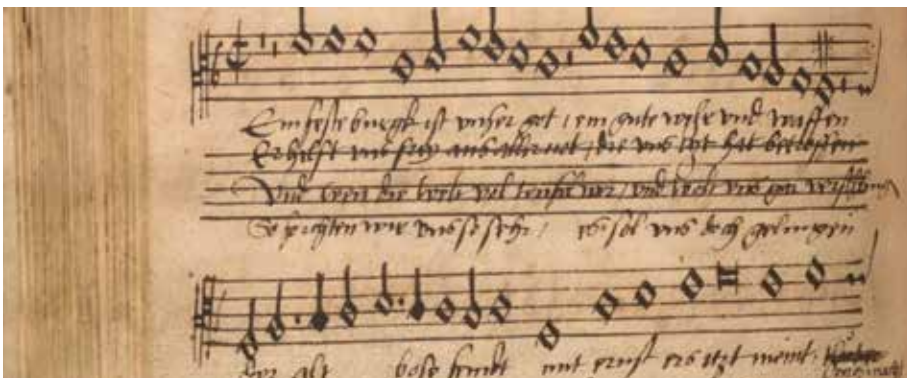 Ein feste burgk ist unser got, ein gute wehr und waffen
Er hilft uns frey aus aller not, die uns itzt hat betroffen
Und wen die welt vol teufel wer, und uns gar
So furchten wir uns so sehr, es sol uns doch gelingen
Der alt bose feindt mit ernst ers itzt meint,